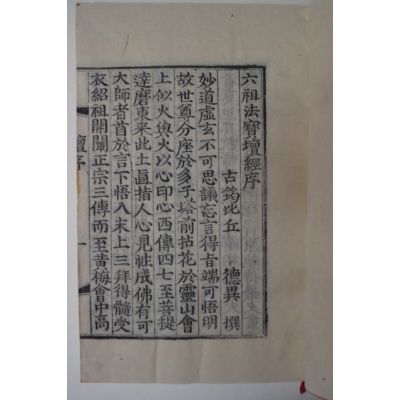 六祖法寶壇經序
古筠比丘 德異 撰
妙道虛玄不可思議忘言得旨端可悟明
故世尊分座於多子塔前拈花於靈山會
上似火與火以心印心西傳四七至菩提
達磨東來此土直指人心見性成佛有可
大師者首於言下悟入末上三拜得髓受
衣紹祖開闡正宗三傳而至黃梅會中高
壇序
一